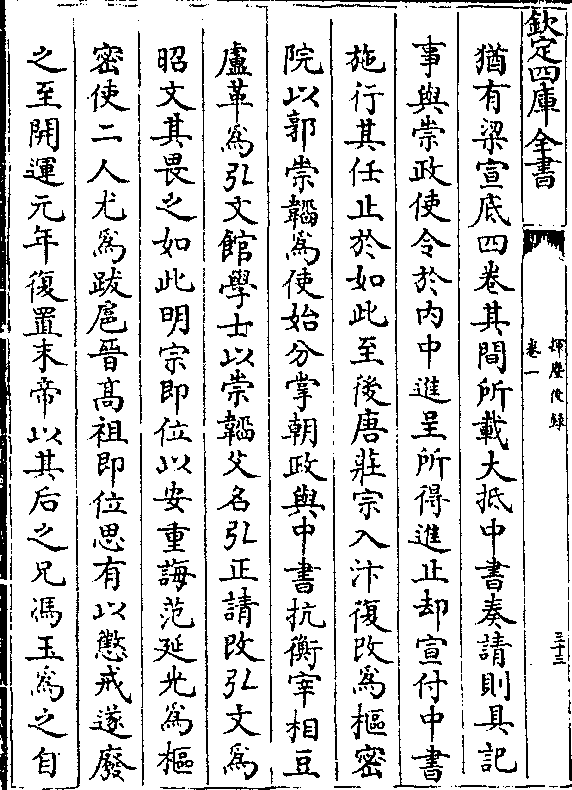 欽定四庫全書
揮麈後録
卷一
三十三
猶有梁宣底四卷其間所載大抵中書奏請則具記
事與崇政使令於内中進呈所得進止却宣付中書
施行其任止於如此至後唐莊宗入汴復改為樞密
院以郭崇韜為使始分掌朝政與中書抗衡宰相豆
盧革為弘文館學士以崇韜父名弘正請改弘文為
昭文其畏之如此明宗即位以安重誨范延光為樞
密使二人尤為跋扈晉髙祖即位思有以懲戒遂廢
之至開運元年復置末帝以其后之兄馮玉為之自